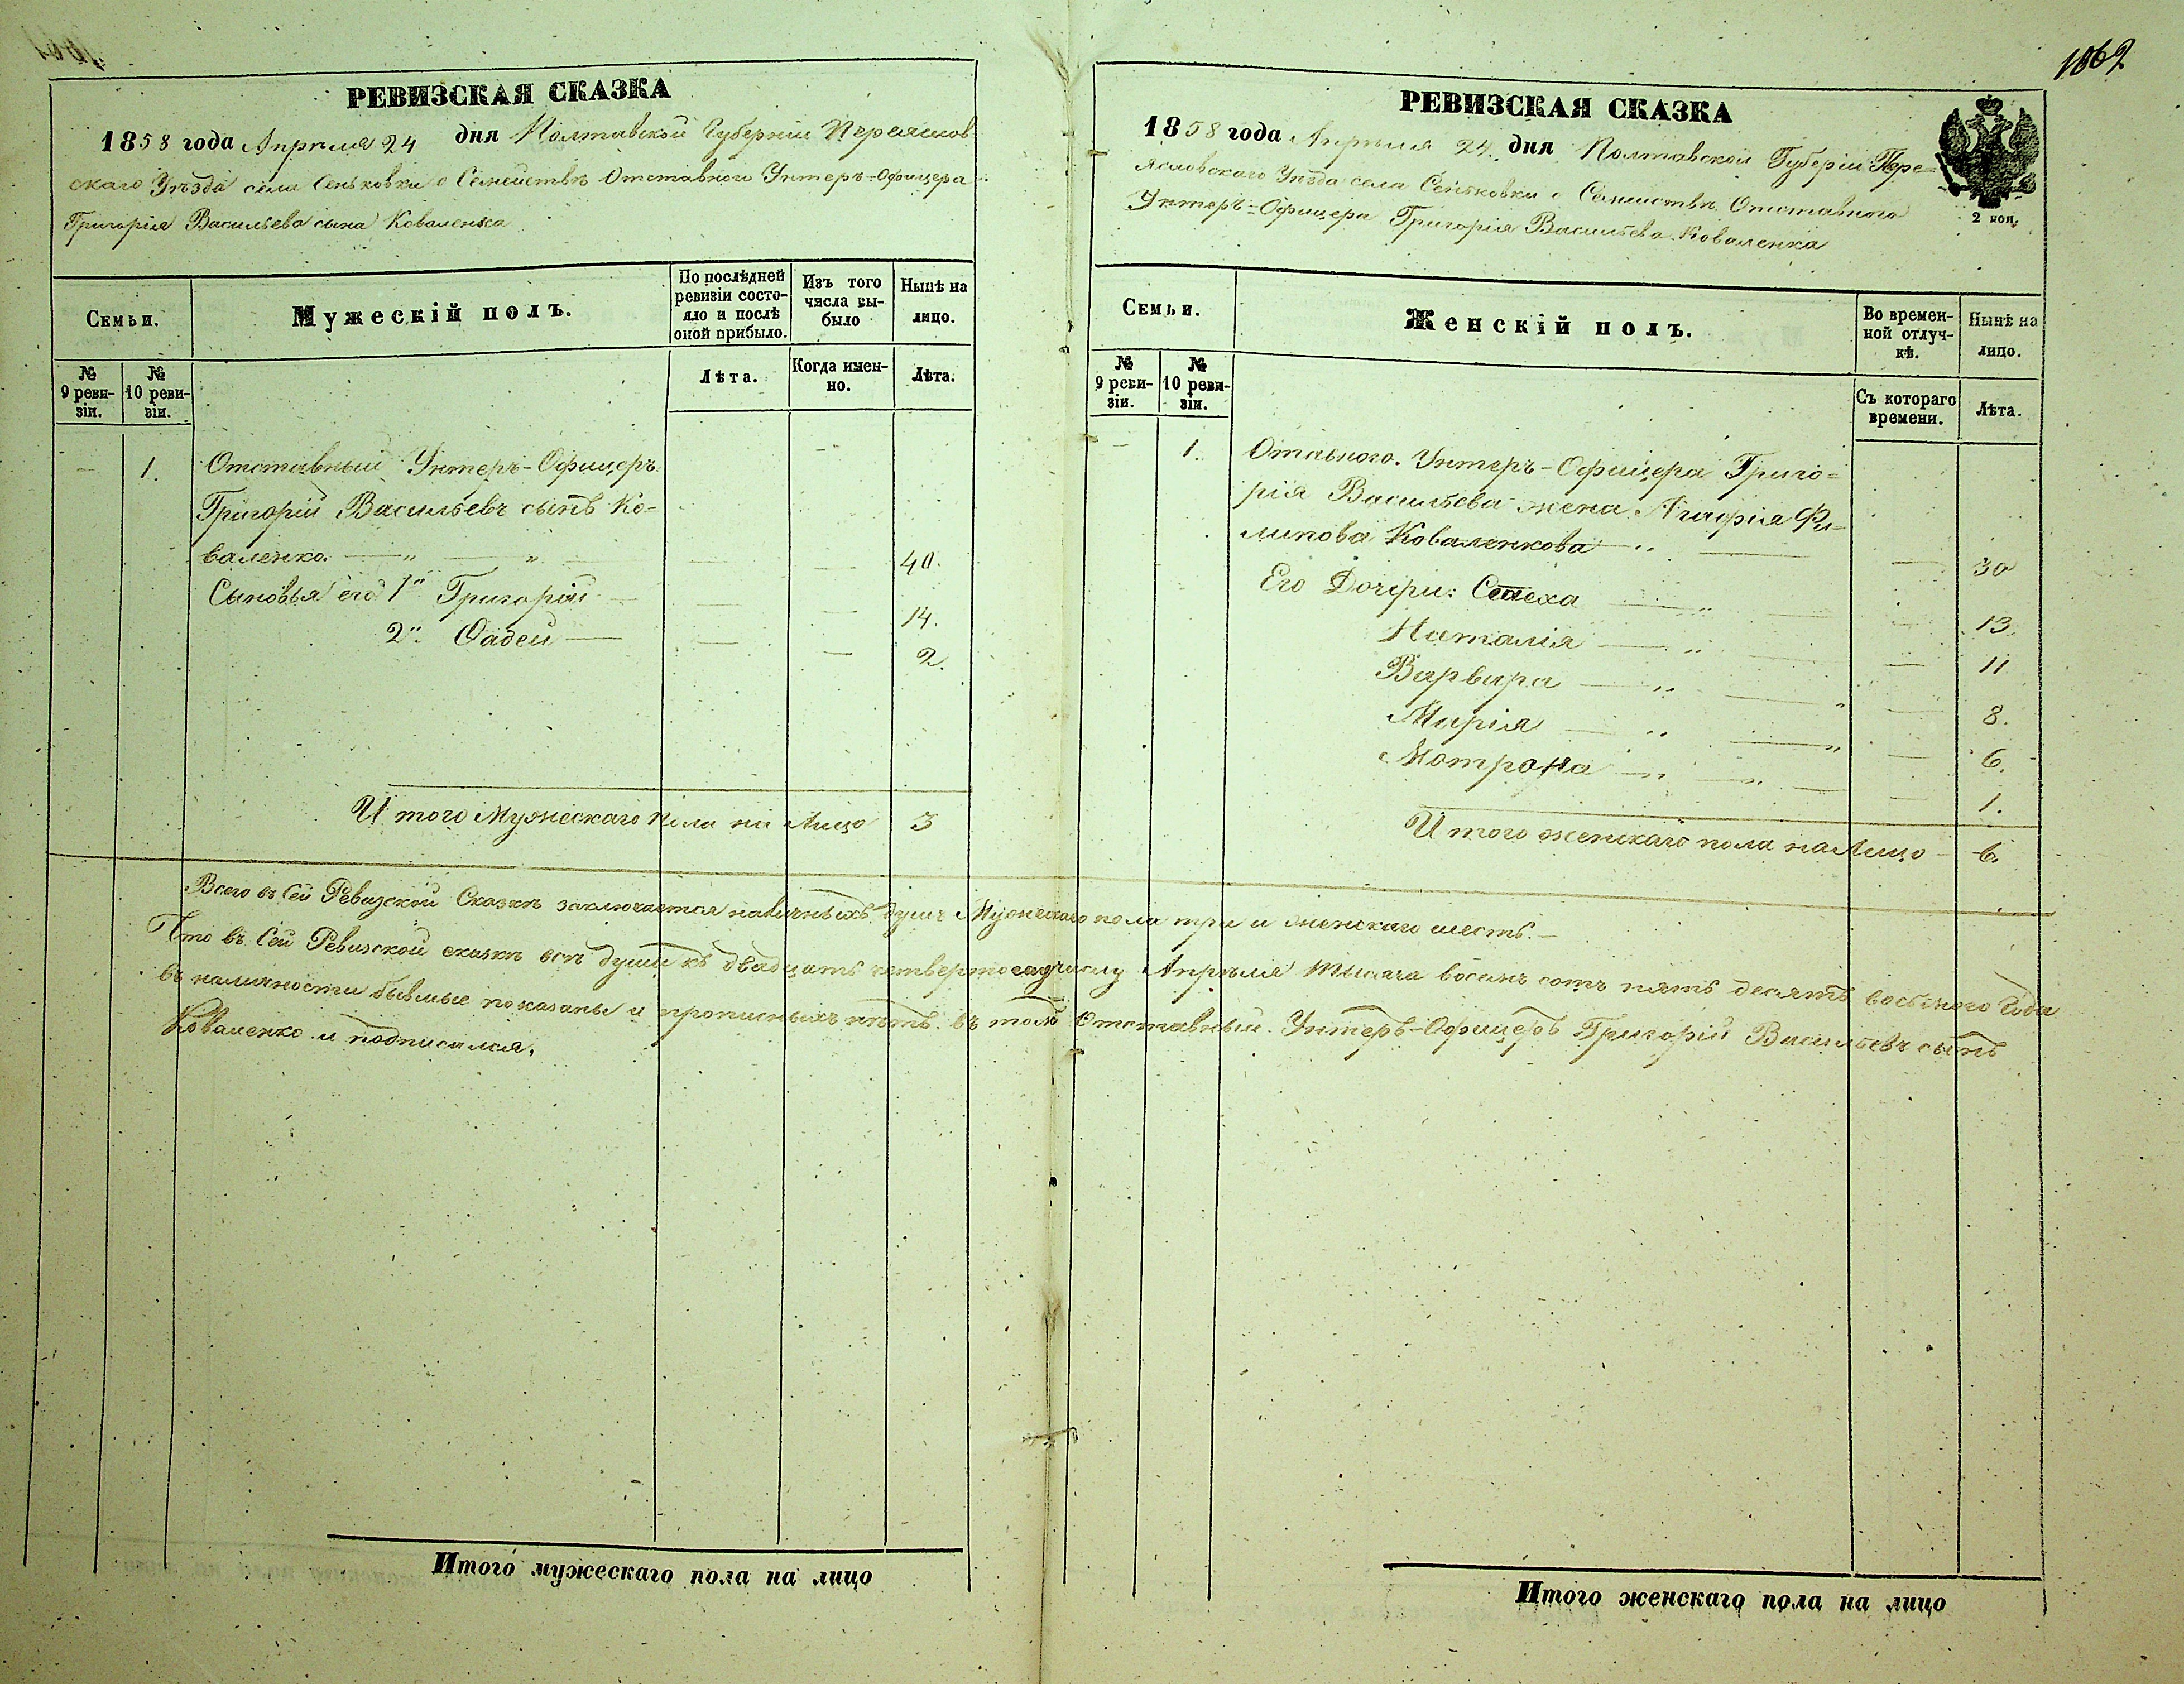 РЕВИЗСКАЯ СКАЗКА
1858 года Апрѣля 24 дня Полтавской Губерніи Переяслов
скаго Уѣзда села Сеньковки о Семействѣ Отставного Унтеръ-Офицера
Григорія Васильева сына Коваленка
Семьи.
Мужескій полъ.
По послѣдней
ревизіи состо-
яло и послѣ
оной прибыло.
Изъ того
числа вы-
было
Нынѣ на
лицо.
№
9 реви-
зіи.
№
10 реви-
зіи.
Лѣта.
Когда имен-
но.
Лѣта.
— 1. Отставный Унтеръ-Офицеръ
Григорій Васильевъ сынъ Ко-
валенко — " — " — — — 40.
Сыновья его 1" Григорій — — — 14.
2". Фадей — — — 2.
И того Мужескаго пола на Лицо 3
Итого мужескаго пола на лицо
1862
РЕВИЗСКАЯ СКАЗКА
1858 года Апрѣля 24 дня Полтавской Губерніи Пере-
яславскаго Уѣзда села Сеньковки о Семействѣ Отставного
Унтеръ-Офицера Григорія Васильева Коваленка
2 коп.
Семьи.
Женскій полъ.
Во времен-
ной отлуч-
кѣ.
Нынѣ на
лицо.
№
9 реви-
зіи.
№
10 реви-
зіи.
Съ котораго
времени.
Лѣта.
— 1. Отавного. Унтеръ-Офицера Григо-
рія Васильева жена Агафія Фи-
липова Коваленкова — " — — 30
Его Дочери: — " — — 13.
Наталія — " — — 11
Варвара — " — " — 8.
Марія — " — " — 6.
Мотрона — " — " — — 1.
И того женскаго пола на Лицо — 6.
Итого женскаго пола на лицо
Всего въ Сей Ревизской Сказкѣ заключается наличныхъ душъ Мужескаго пола три и женскаго шесть. —
Что въ Сей Ревизской сказкѣ всѣ души къ двадцать четвертому числу Апрѣля тысяча восемь сотъ пять десятъ восьмого Года
въ наличности бывшые показаны и прописныхъ нѣтъ. въ томъ Отставный. Унтеръ-Офицеръ Григорій Васильевъ сынъ
Коваленко и подписался.